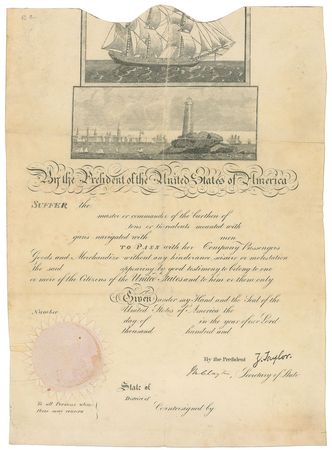 By the President of the United States of America
SUFFER the
master or commander of the burthen of
tons or thereabouts mounted with
guns navigated with men
TO PASS with her Company Passengers
Goods and Merchandize without any hinderance seisure or molestation
the said appearing by good testimony to belong to one
or more of the Citizens of the United States and to him or them only
Given under my Hand and the Seal of the
United States of America the
Number day of in the year of our Lord
thousand hundred and
By the President Z. Taylor.
Secretary of State
State of
District of
To all Persons whom
these may concern
Countersigned by